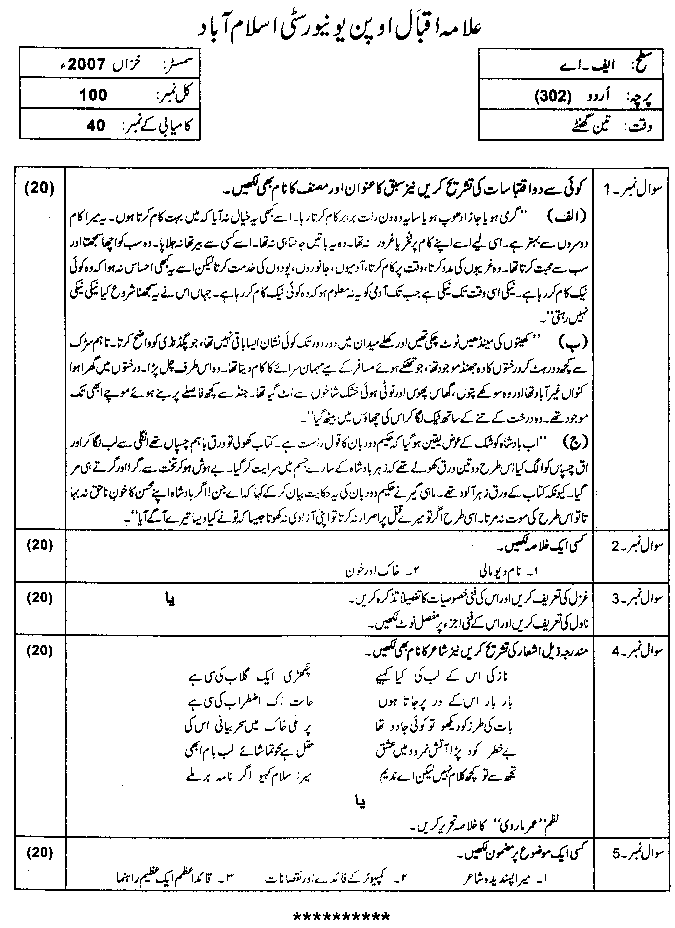 علامہ اقبال اوپن یونیورسٹی اسلام آباد
سطح: ایف۔اے
پرچہ: اُردو (302)
وقت: تین گھنٹے
سمسٹر: خزاں 2007ء
کل نمبر: 100
کامیابی کے نمبر: 40
سوال نمبر۔1 کوئی سے دو اقتباسات کی تشریح کریں نیز سبق کا عنوان اور مصنف کا نام بھی لکھیں۔ (20)
(الف) "گرمی ہو یا جاڑا دھوپ ہو یا سایہ وہ دن رات برابر کام کرتا رہا۔ اسے کبھی یہ خیال نہ آیا کہ میں بہت کام کرتا ہوں۔ یہ میرا کام
دوسروں سے بہتر ہے۔ اسی لیے اسے اپنے کام پر فخر یا غرور نہ تھا۔ وہ یہ باتیں جانتا ہی نہ تھا۔ اسے کسی سے بیر تھا نہ جلاپا۔ وہ سب کو اچھا سمجھتا اور
سب سے محبت کرتا تھا۔ وہ غریبوں کی مدد کرتا، وقت پر کام کرتا، آدمیوں، جانوروں، پودوں کی خدمت کرتا لیکن اسے یہ کبھی احساس نہ ہوا کہ وہ کوئی
نیک کام کر رہا ہے۔ نیکی اسی وقت تک نیکی ہے جب تک آدمی کو یہ نہ معلوم ہو کہ وہ کوئی نیک کام کر رہا ہے۔ جہاں اس نے یہ سمجھنا شروع کیا نیکی نیکی
نہیں رہتی"۔
(ب) "کھیتوں کی مینڈھیں ٹوٹ چکی تھیں اور کھلے میدان میں دور دور تک کوئی نشان ایسا باقی نہیں تھا، جو پگڈنڈی کو واضح کرتا۔ تاہم سڑک
سے کچھ دور ہٹ کر درختوں کا وہ جھنڈ موجود تھا، جو تھکے ہوئے مسافر کے لیے مہمان سرائے کا کام دیتا تھا۔ وہ اس طرف چل پڑا۔ درختوں میں گھرا ہوا
کنواں غیر آباد تھا اور وہ سوکھے پتوں، گھاس پھوس اور ٹوٹی ہوئی خشک شاخوں سے اٹ گیا تھا۔ جھنڈ سے کچھ فاصلے پر بنے ہوئے مورچے ابھی تک
موجود تھے۔ وہ درخت کے تنے کے ساتھ ٹیک لگا کر اس کی چھاؤں میں بیٹھ گیا"۔
(ج) "اب بادشاہ کو شک کے عوض یقین ہو گیا کہ حکیم دوبان کا قول راست ہے۔ کتاب کھولی تو ورق باہم چسپاں تھے انگلی سے لب لگا کر اور
اق چسپاں کو الگ کیا اس طرح دو تین ورق کھولے تھے کہ زہر بادشاہ کے سارے جسم میں سرایت کر گیا۔ بے ہوش ہو کر تخت سے گرا اور گرتے ہی مر
گیا۔ کیونکہ کتاب کے ورق زہر آلود تھے۔ ماہی گیر نے حکیم دوبان کی یہ حکایت بیان کر کے کہا کہ اے جن! اگر بادشاہ اپنے محسن کا خونِ ناحق نہ بہا
تا تو اس طرح کی موت نہ مرتا۔ اسی طرح اگر تو میرے قتل پر اصرار نہ کرتا تو اپنی آزادی نہ کھوتا جیسا کہ تو نے کیا ویسا تیرے آگے آیا"۔
سوال نمبر۔2 کسی ایک خلاصہ لکھیں۔ (20)
۱۔ نام دیو مالی ۲۔ خاک اور خون
سوال نمبر۔3 غزل کی تعریف کریں اور اس کی فنی خصوصیات کا تفصیلاً تذکرہ کریں۔ یا (20)
ناول کی تعریف کریں اور اس کے فنی اجزء پر مفصل نوٹ لکھیں۔
سوال نمبر۔4 مندرجہ ذیل اشعار کی تشریح کریں نیز شاعر کا نام بھی لکھیں۔ (20)
نازکی اس کے لب کی کیا کہیے پنکھڑی ایک گلاب کی سی ہے
بار بار اس کے در پر جاتا ہوں حالت اک اضطراب کی سی ہے
بات کی طرز کو دیکھو تو کوئی جادو تھا پر ملی خاک میں سحر بیانی اس کی
بے خطر کود پڑا آتش نمرود میں عشق عقل ہے محو تماشائے لب بام ابھی
تجھ سے تو کچھ کلام نہیں لیکن اے ندیم میرا سلام کہیو اگر نامہ بر ملے
یا
نظم "عمر ماروی" کا خلاصہ تحریر کریں۔
سوال نمبر۔5 کسی ایک موضوع پر مضمون لکھیں۔ (20)
۱۔ میرا پسندیدہ شاعر ۲۔ کمپیوٹر کے فائدے اور نقصانات ۳۔ قائداعظم ایک عظیم راہنما
**********